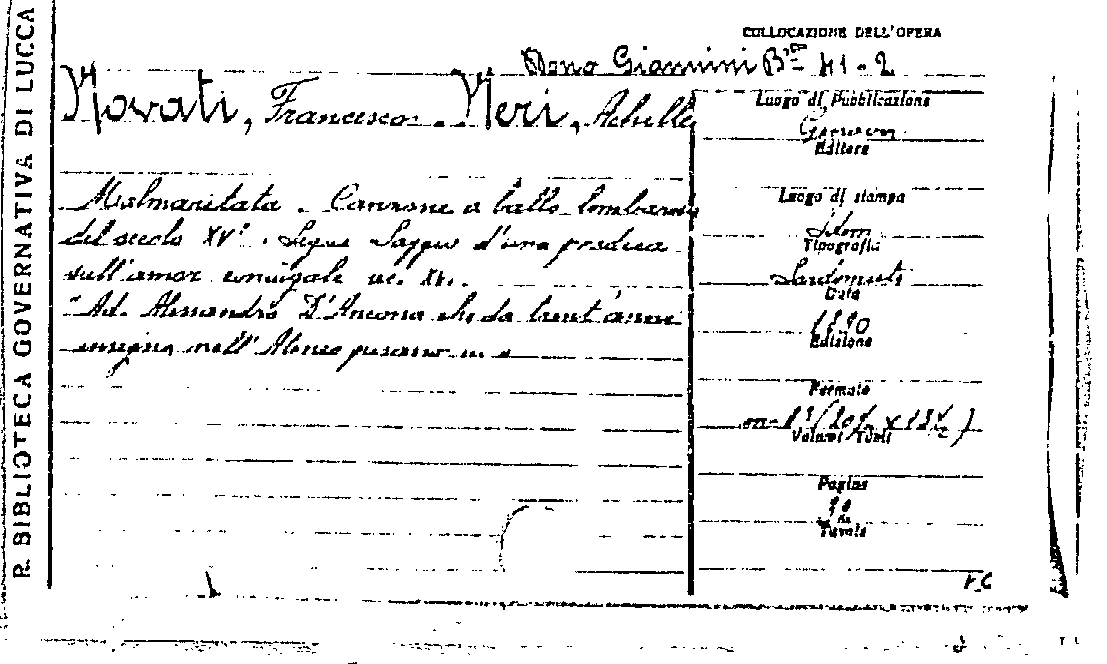 R. BIBLIOTECA GOVERNATIVA DI LUCCA
COLLOCAZIONE DELL'OPERA
Dono Giannini Bta 41-2
Novati, Francesco. Neri, Achille
Malmaritata. Canzone a ballo lombarda
del secolo XV°. Segue Saggio d'una predica
sull'amor coniugale
"Ad. Alessandro D'Ancona che da trent'anni
insegna nell'Ateneo pisano
Luogo di Pubblicazione
Genova
Editore
Luogo di stampa
Idem
Tipografia
Sordomuti
Data
1890
Edizione
Formato
in-8°
Volumi Tomi
Pagine
Tavole
F.C